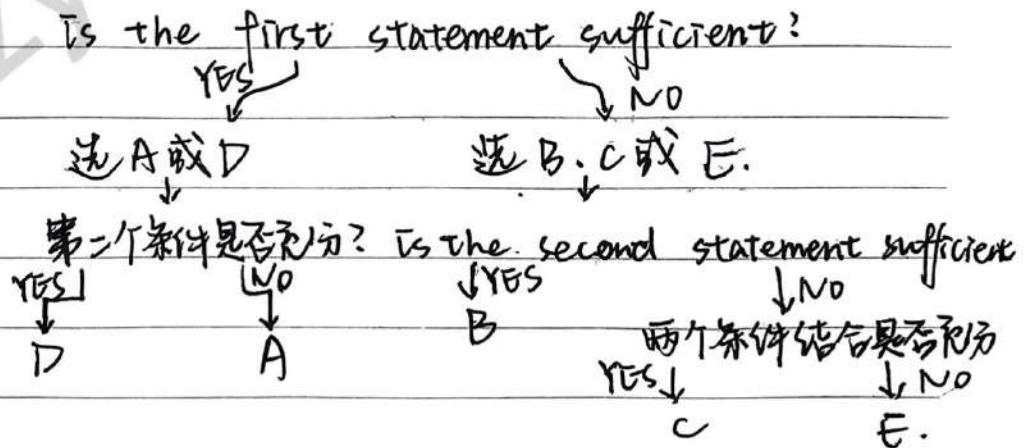 Is the first statement sufficient?
YES NO
选A或D 选B、C或E.
第二个条件是否充分? Is the second statement sufficient
YES NO YES NO
D A B 两个条件结合是否充分
YES NO
C E.